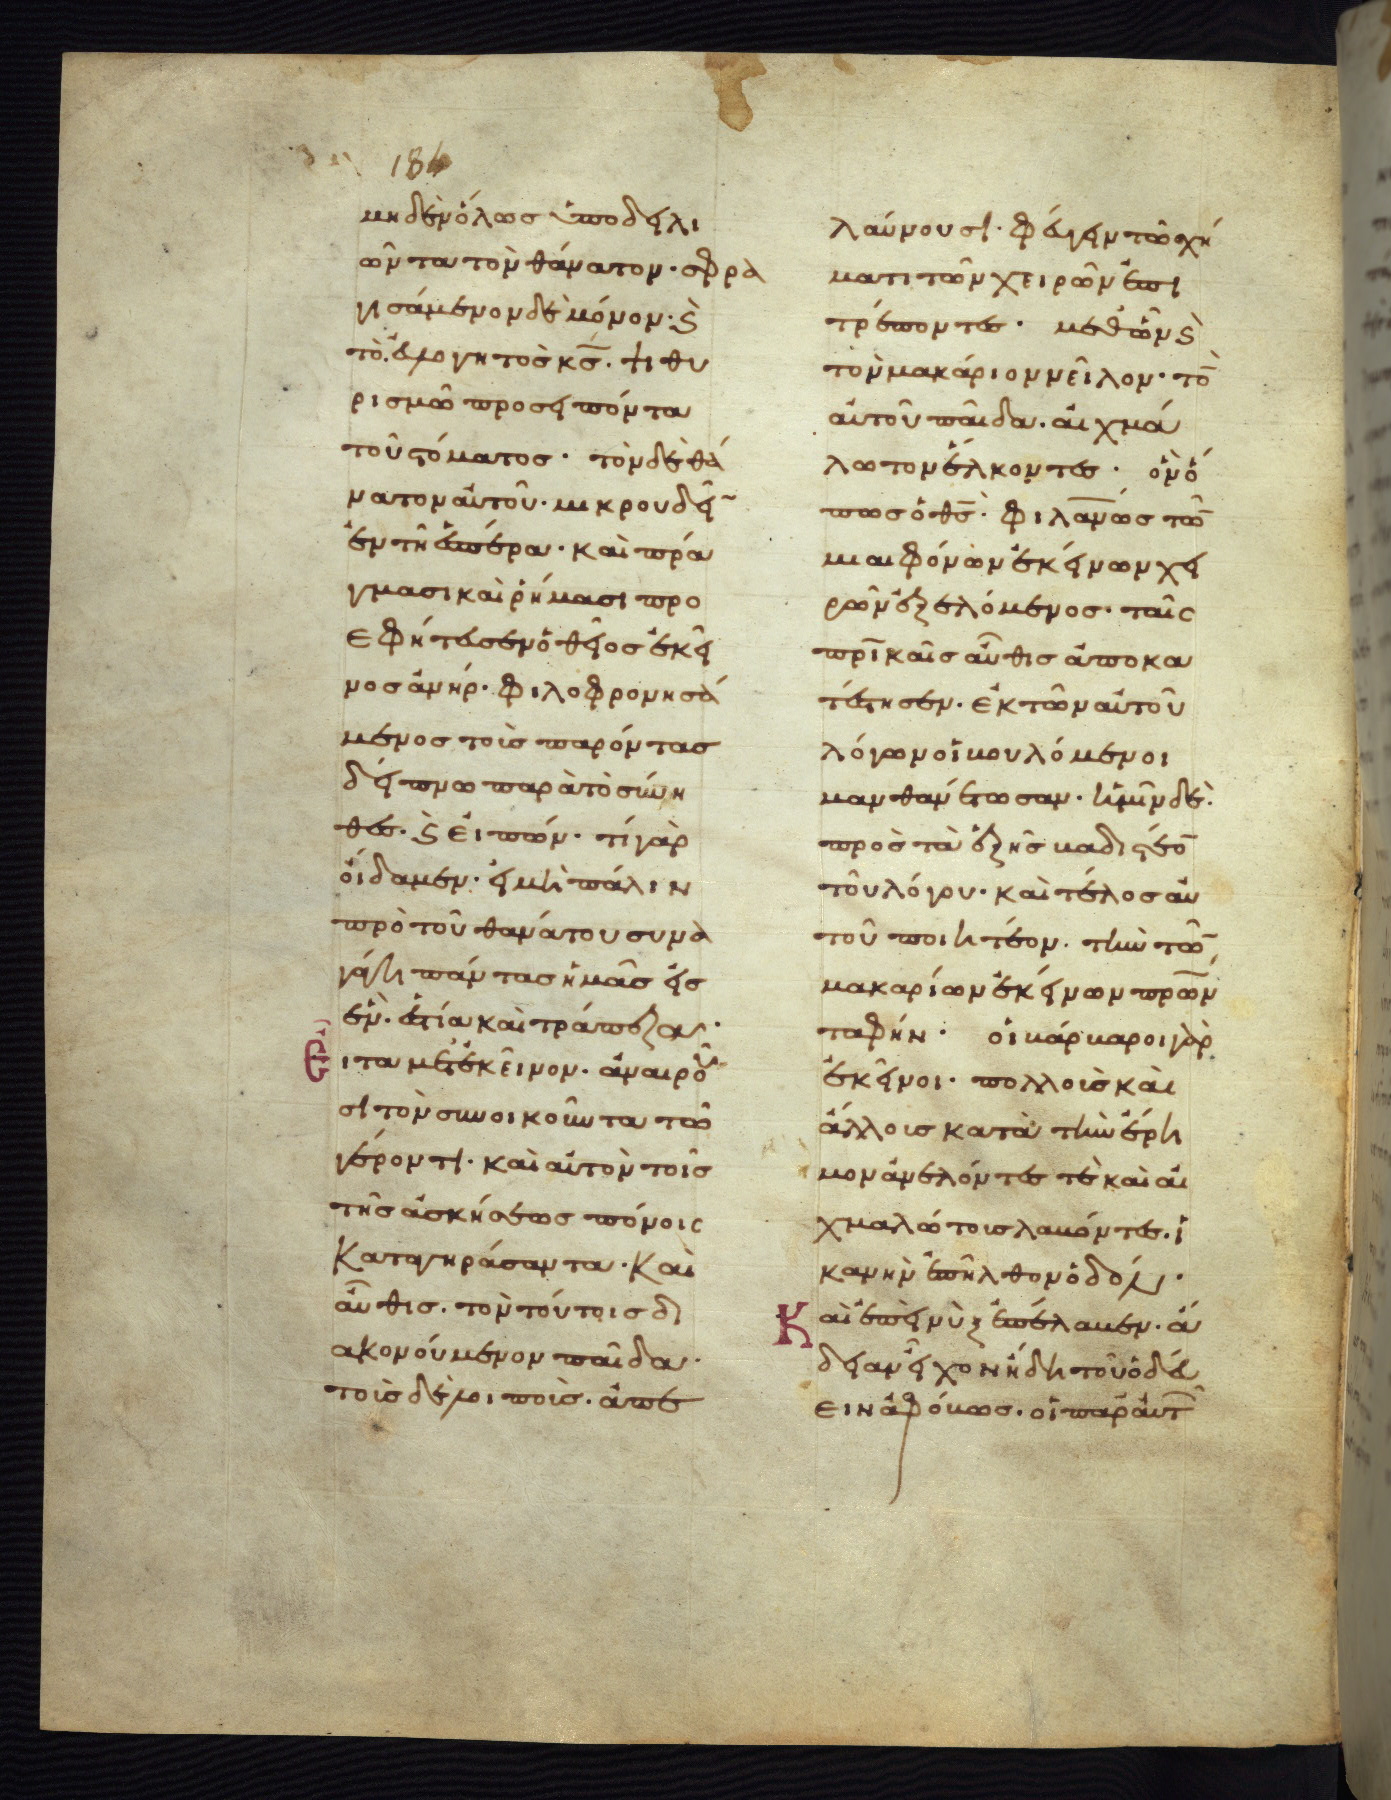 186
μηδὲν ὅλως ὑποδειλι
ῶντα τὸν θάνατον· σφρα
γισάμενον δὲ μόνον· καὶ
τὸ εὐλογητὸς κς̅· ψιθυ
ρισμῶ προσειπόντα
τοῦ στόματος· τὸν δὲ θά
νατον αὐτοῦ· μικροῦ δεῖν
ἐν τῆ ἑσπέρα· καὶ πρά
γμασι καὶ ῥήμασι προ
εφήτευσεν ὁ θεῖος ἐκεῖ
νος ἀνήρ· φιλοφρονησά
μενος τοὺς παρόντας
δείπνω παρὰ τὸ σύνη
θες· καὶ εἰπών· τί γὰρ
οἴδαμεν· εἰ μὴ πάλιν
πρὸ τοῦ θανάτου συνά
γει πάντας ἡμᾶς εἰς
ἓν· ἑστία καὶ τράπεζα·
Εἶτα μετ' ἐκεῖνον· ἀναιροῦ
σι τὸν συνοικοῦντα τῶ
γέροντι· καὶ αὐτὸν τοῖς
τῆς ἀσκήσεως πόνοις
καταγηράσαντα· Καὶ
αὖθις· τὸν τούτοις δι
ακονούμενον παῖδα·
τοὺς δὲ λοιποὺς· ἀπε
λαύνουσι· φεύγειν τῶ σχή
ματι τῶν χειρῶν ἐπι
τρέποντες· μεθ' ὧν καὶ
τὸν μακάριον νεῖλον· τὸν
αὐτοῦ παῖδα· αἰχμά
λωτον ἕλκοντες· ὃν ὅ
πως ὁ θς̅· φιλανω̅ς τῶν
μιαιφόνων ἐκείνων χει
ρῶν ἐξελόμενος· ταῖς
πρι̅καῖς αὖθις ἀποκα
τέστησεν· ἐκ τῶν αὐτοῦ
λόγων οἱ βουλόμενοι
μανθανέτωσαν· ἡμῖν δὲ·
πρὸς τὰ ἑξῆς βαδιστέον
τοῦ λόγου· καὶ τέλος αὐ
τοῦ ποιητέον· τὴν τῶν
μακαρίων ἐκείνων πρω̅ν
ταφήν· οἱ βάρβαροι γὰρ
ἐκεῖνοι· πολλοὺς καὶ
ἄλλους κατὰ τὴν ἔρη
μον ἀνελόντες τὲ καὶ αἰ
χμαλώτους λαβόντες· ἱ
κανὴν ἐπῆλθον ὁδόν·
Καὶ ἐπεὶ νὺξ ἐπέλαβεν· ἄ
δειαν εἶχον ἤδη τοῦ ὁδεύ
ειν ἀφόβως· οἱ παρ' αὐτῶν